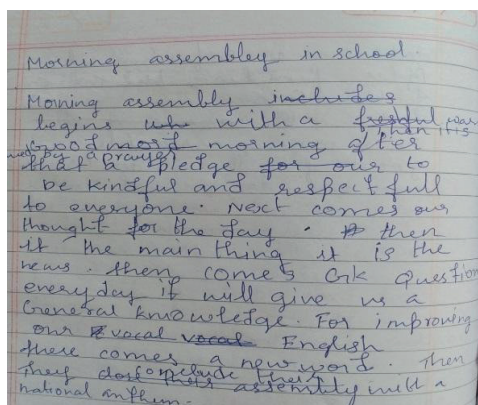 Morning assembley in school.
Morning assembly includes
begins wh with a
Good mord morning after
that a pledge for our to
be kindful and respect full
to everyone. Next comes our
thought for the day. then
it the main thing it is the
news. then comes Gk Question
everyday it will give us a
General knowledge. For improving
our vocal vocal English
there comes a new word. Then
They conclude their assembly with a
national anthem.